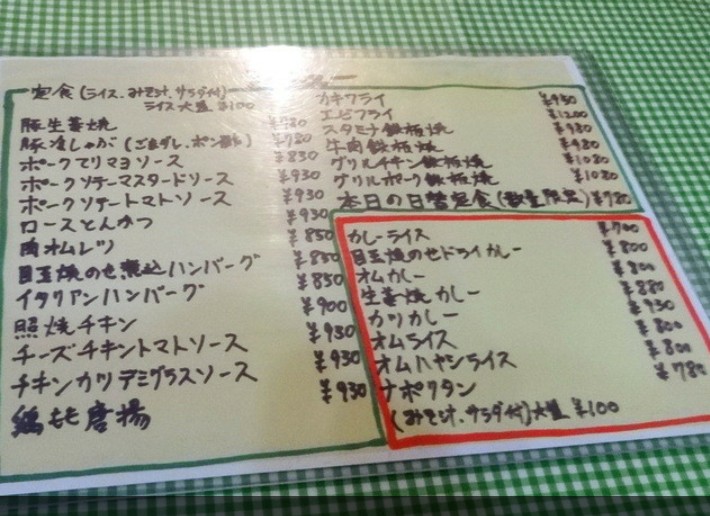 定食(ライス、みそ汁、サラダ付)
ライス大盛 ¥100
豚生姜焼 ¥780
豚冷しゃぶ(ごまダレ、ポン酢) ¥780
ポークてリマヨソース ¥830
ポークソテーマスタードソース ¥930
ポークソテートマトソース ¥930
ロースとんかつ ¥930
肉オムレツ ¥850
目玉焼のせ煮込ハンバーグ ¥850
イタリアンハンバーグ ¥850
照焼チキン ¥900
チーズチキントマトソース ¥930
チキンカツデミグラスソース ¥930
鶏もも唐揚 ¥930
カキフライ ¥930
エビフライ ¥1200
スタミナ鉄板焼 ¥980
牛肉鉄板焼 ¥980
グリルチキン鉄板焼 ¥1080
グリルポーク鉄板焼 ¥1080
本日の日替定食(数量限定) ¥780
カレーライス ¥700
目玉焼のせドライカレー ¥800
オムカレー ¥800
生姜焼カレー ¥880
カツカレー ¥930
オムライス ¥800
オムハヤシライス ¥800
ナポリタン ¥780
(みそ汁、サラダ付)大盛 ¥100